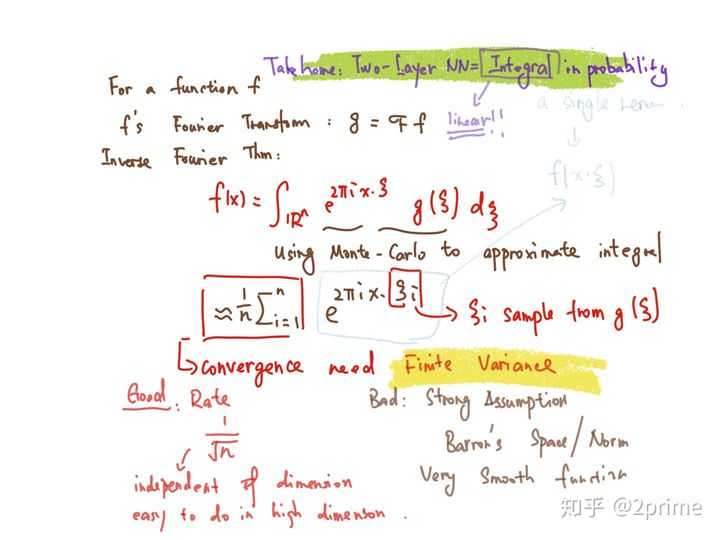 Take home: Two-Layer NN = Integral in probability
For a function f
linear!!
a single neuron.
f's Fourier Transform : g = Ff
Inverse Fourier Thm:
f(x·ξ)
f(x) = ∫_{ℝⁿ} e^{2πi x·ξ} g(ξ) dξ
Using Monte-Carlo to approximate integral
≈ 1/n Σ_{i=1}^{n} e^{2πi x·ξi} → ξi sample from g(ξ)
convergence need Finite Variance
Good: Rate
1/√n
independent of dimension
easy to do in high dimenson.
Bad: Strong Assumption
Barron's Space/Norm
Very Smooth function
知乎 @2prime